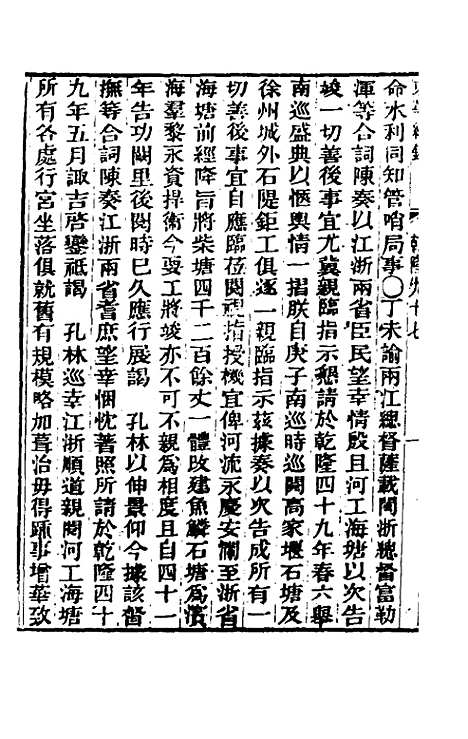 命水利同知管哨局事○丁未諭兩江總督薩載閩浙總督富勒
渾等合詞陳奏以江浙兩省臣民望幸情殷且河工海塘以次告
竣一切善後事宜尤冀親臨指示懇請於乾隆四十九年春六舉
南巡盛典以愜輿情一摺朕自庚子南巡時巡閱高家堰石塘及
徐州城外石隄鉅工俱逐一親臨指示茲據奏以次告成所有一
切善後事宜自應臨莅閱視指授機宜俾河流永慶安瀾至浙省
海塘前經降旨將柴塘四千二百餘丈一體改建魚鱗石塘為濱
海羣黎永資捍衛今要工將竣亦不可不親為相度且自四十一
年告功闕里後閱時已久應行展謁　孔林以伸景仰今據該督
撫等合詞陳奏江浙兩省耆庶望幸悃忱著照所請於乾隆四十
九年五月諏吉啓鑾祗謁　孔林巡幸江浙順道親閱河工海塘
所有各處行宮坐落俱就舊有規模略加葺治毋得踵事增華致